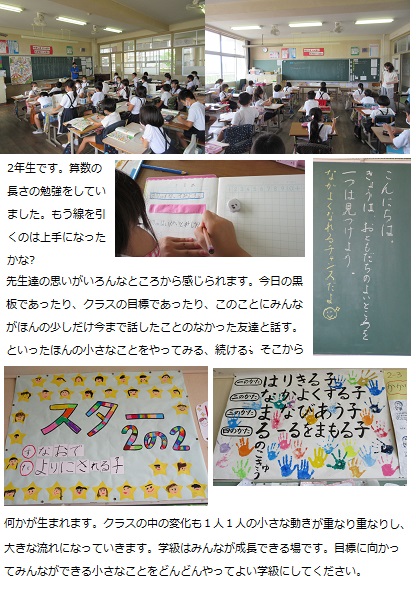 2年生です。算数の
長さの勉強をしてい
ました。もう線を引
くのは上手になった
かな?
こんにちは。
きょうは、おともだちのよいところを
一つは見つけよう。
なかよくなれるチャンスだよ
先生達の思いがいろんなところから感じられます。今日の黒
板であったり、クラスの目標であったり、このことにみんな
がほんの少しだけ今まで話したことのなかった友達と話す。
といったほんの小さなことをやってみる、続ける。そこから
スター
2の2
すなおで
たよりにされる子
一のかた はりきる子
二のかた なかよくする子
三のかた まなびあう子
四のかた るーるをまもる子
何かが生まれます。クラスの中の変化も１人１人の小さな動きが重なり重なりし、
大きな流れになっていきます。学級はみんなが成長できる場です。目標に向かっ
てみんなができる小さなことをどんどんやってよい学級にしてください。